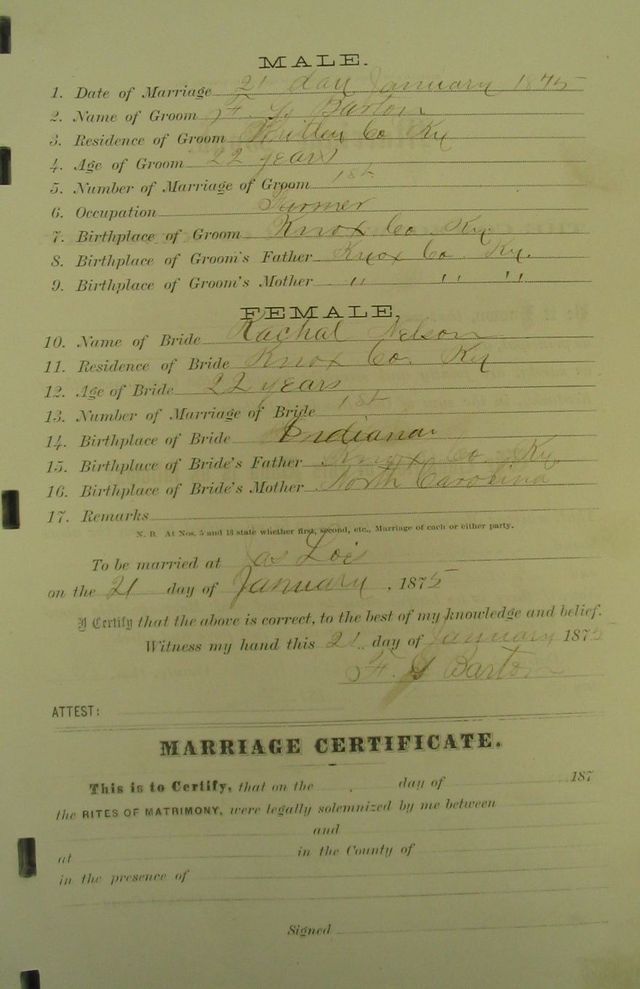 MALE.
1. Date of Marriage 21 day January 1875
2. Name of Groom F. Barton
3. Residence of Groom Co Ky
4. Age of Groom 22 years
5. Number of Marriage of Groom 1st
6. Occupation Farmer
7. Birthplace of Groom Knox Co. Ky.
8. Birthplace of Groom's Father Knox Co. Ky.
9. Birthplace of Groom's Mother " " "
FEMALE,
10. Name of Bride Rachal Nelson
11. Residence of Bride Knox Co. Ky
12. Age of Bride 22 years
13. Number of Marriage of Bride 1st
14. Birthplace of Bride Indiana
15. Birthplace of Bride's Father Knox Co. Ky
16. Birthplace of Bride's Mother North Carolina
17. Remarks
N. B. At Nos. 5 and 13 state whether first, second, etc., Marriage of each or either party.
To be married at
on the 21 day of January, 1875
I Certify that the above is correct, to the best of my knowledge and belief.
Witness my hand this 21 day of January 1875
F. Barton
ATTEST:
MARRIAGE CERTIFICATE.
This is to Certify, that on the day of 187
the RITES OF MATRIMONY, were legally solemnized by me between
and
at in the County of
in the presence of
Signed